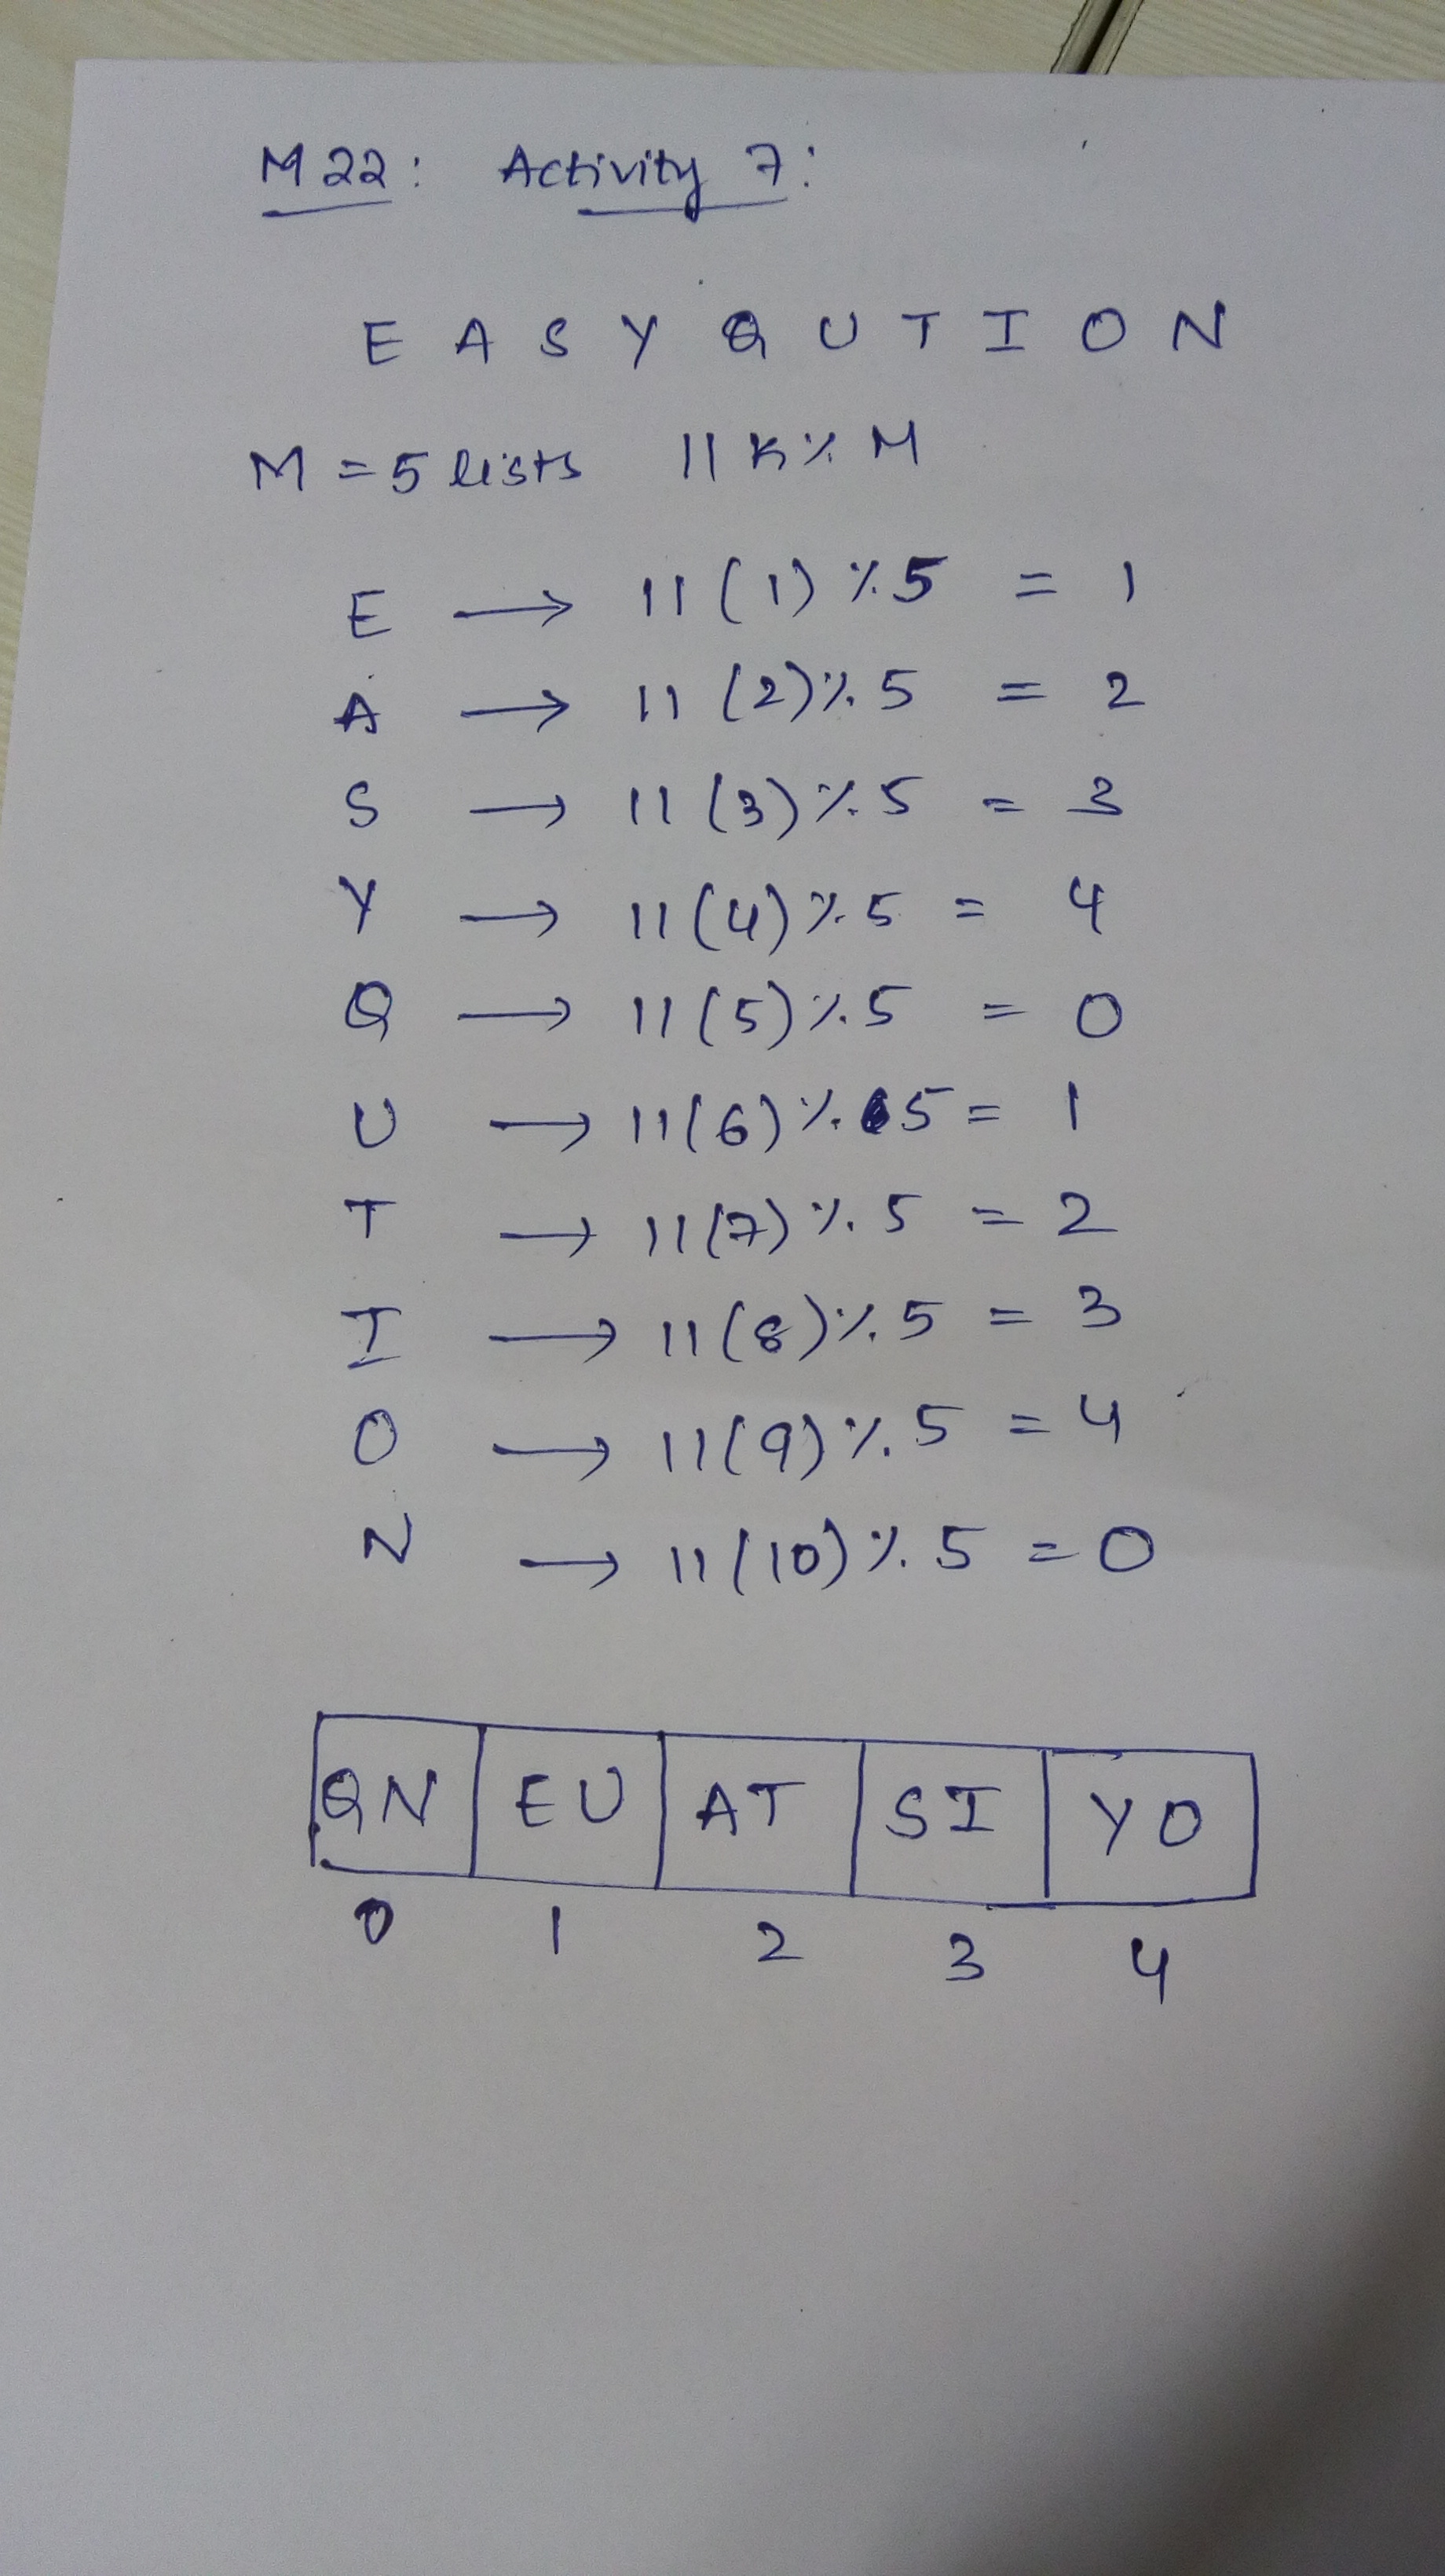 M22: Activity 7:
E A S Y Q U T I O N
M = 5 lists 11 K % M
E → 11 (1) % 5 = 1
A → 11 (2) % 5 = 2
S → 11 (3) % 5 = 3
Y → 11 (4) % 5 = 4
Q → 11 (5) % 5 = 0
U → 11 (6) % 5 = 1
T → 11 (7) % 5 = 2
I → 11 (8) % 5 = 3
O → 11 (9) % 5 = 4
N → 11 (10) % 5 = 0
QN EU AT SI YO
0 1 2 3 4